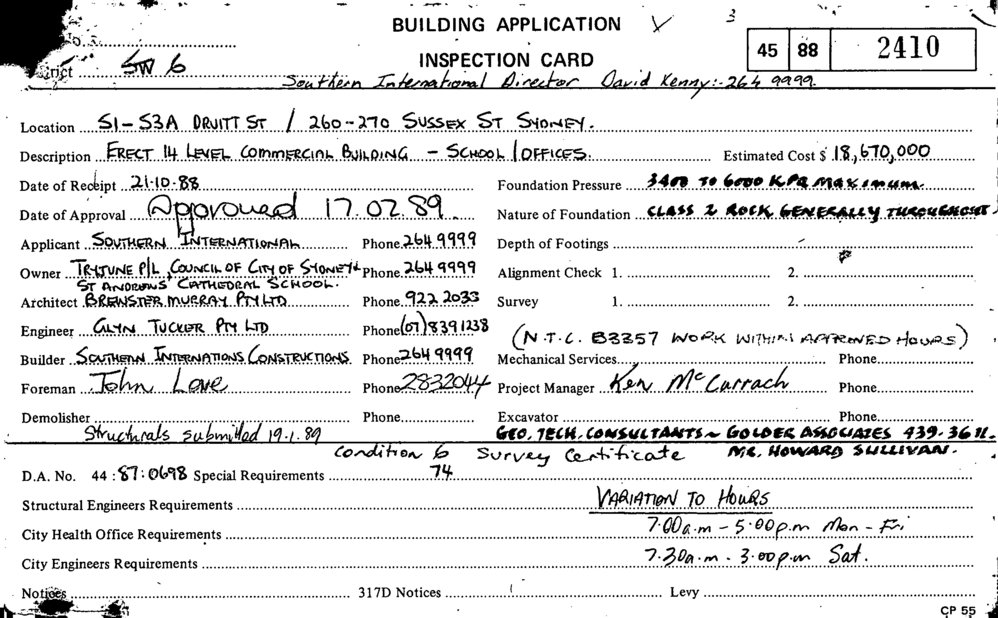 BUILDING APPLICATION 3
INSPECTION CARD 45 88 2410
SW 6
Southern International Director David Kenny:- 264 9999.
Location 51-53A DRUITT ST / 260-270 SUSSEX ST SYDNEY.
Description ERECT 14 LEVEL COMMERCIAL BUILDING - SCHOOL / OFFICES. Estimated Cost $ 18,670,000
Date of Receipt 21.10.88 Foundation Pressure 3400 TO 6000 KPA MAXIMUM.
Date of Approval Approved 17.02.89 Nature of Foundation CLASS 2 ROCK GENERALLY THROUGHOUT
Applicant SOUTHERN INTERNATIONAL Phone 264 9999 Depth of Footings
Owner TRYTUNE P/L, COUNCIL OF CITY OF SYDNEY & Phone 264 9999 Alignment Check 1. 2.
ST ANDREWS CATHEDRAL SCHOOL.
Architect BREWSTER MURRAY PTY LTD Phone 922 2033 Survey 1. 2.
Engineer GLYN TUCKER PTY LTD Phone (07) 8391238 (N.T.C. B3357 WORK WITHIN APPROVED HOURS)
Builder SOUTHERN INTERNATIONS CONSTRUCTIONS Phone 264 9999 Mechanical Services Phone
Foreman John Love Phone 2832044 Project Manager Ken McCurrach Phone
Demolisher Phone Excavator Phone
Structurals submitted 19.1.89 GEO. TECH. CONSULTANTS ~ GOLDER ASSOCIATES 439.3611.
Condition 6 Survey Certificate MR. HOWARD SULLIVAN.
D.A. No. 44 : 87 : 0698 Special Requirements 74
Structural Engineers Requirements VARIATION TO HOURS
City Health Office Requirements 7.00a.m - 5.00p.m Mon - Fri
City Engineers Requirements 7.30a.m - 3.00p.m Sat.
Notices 317D Notices Levy
CP 55